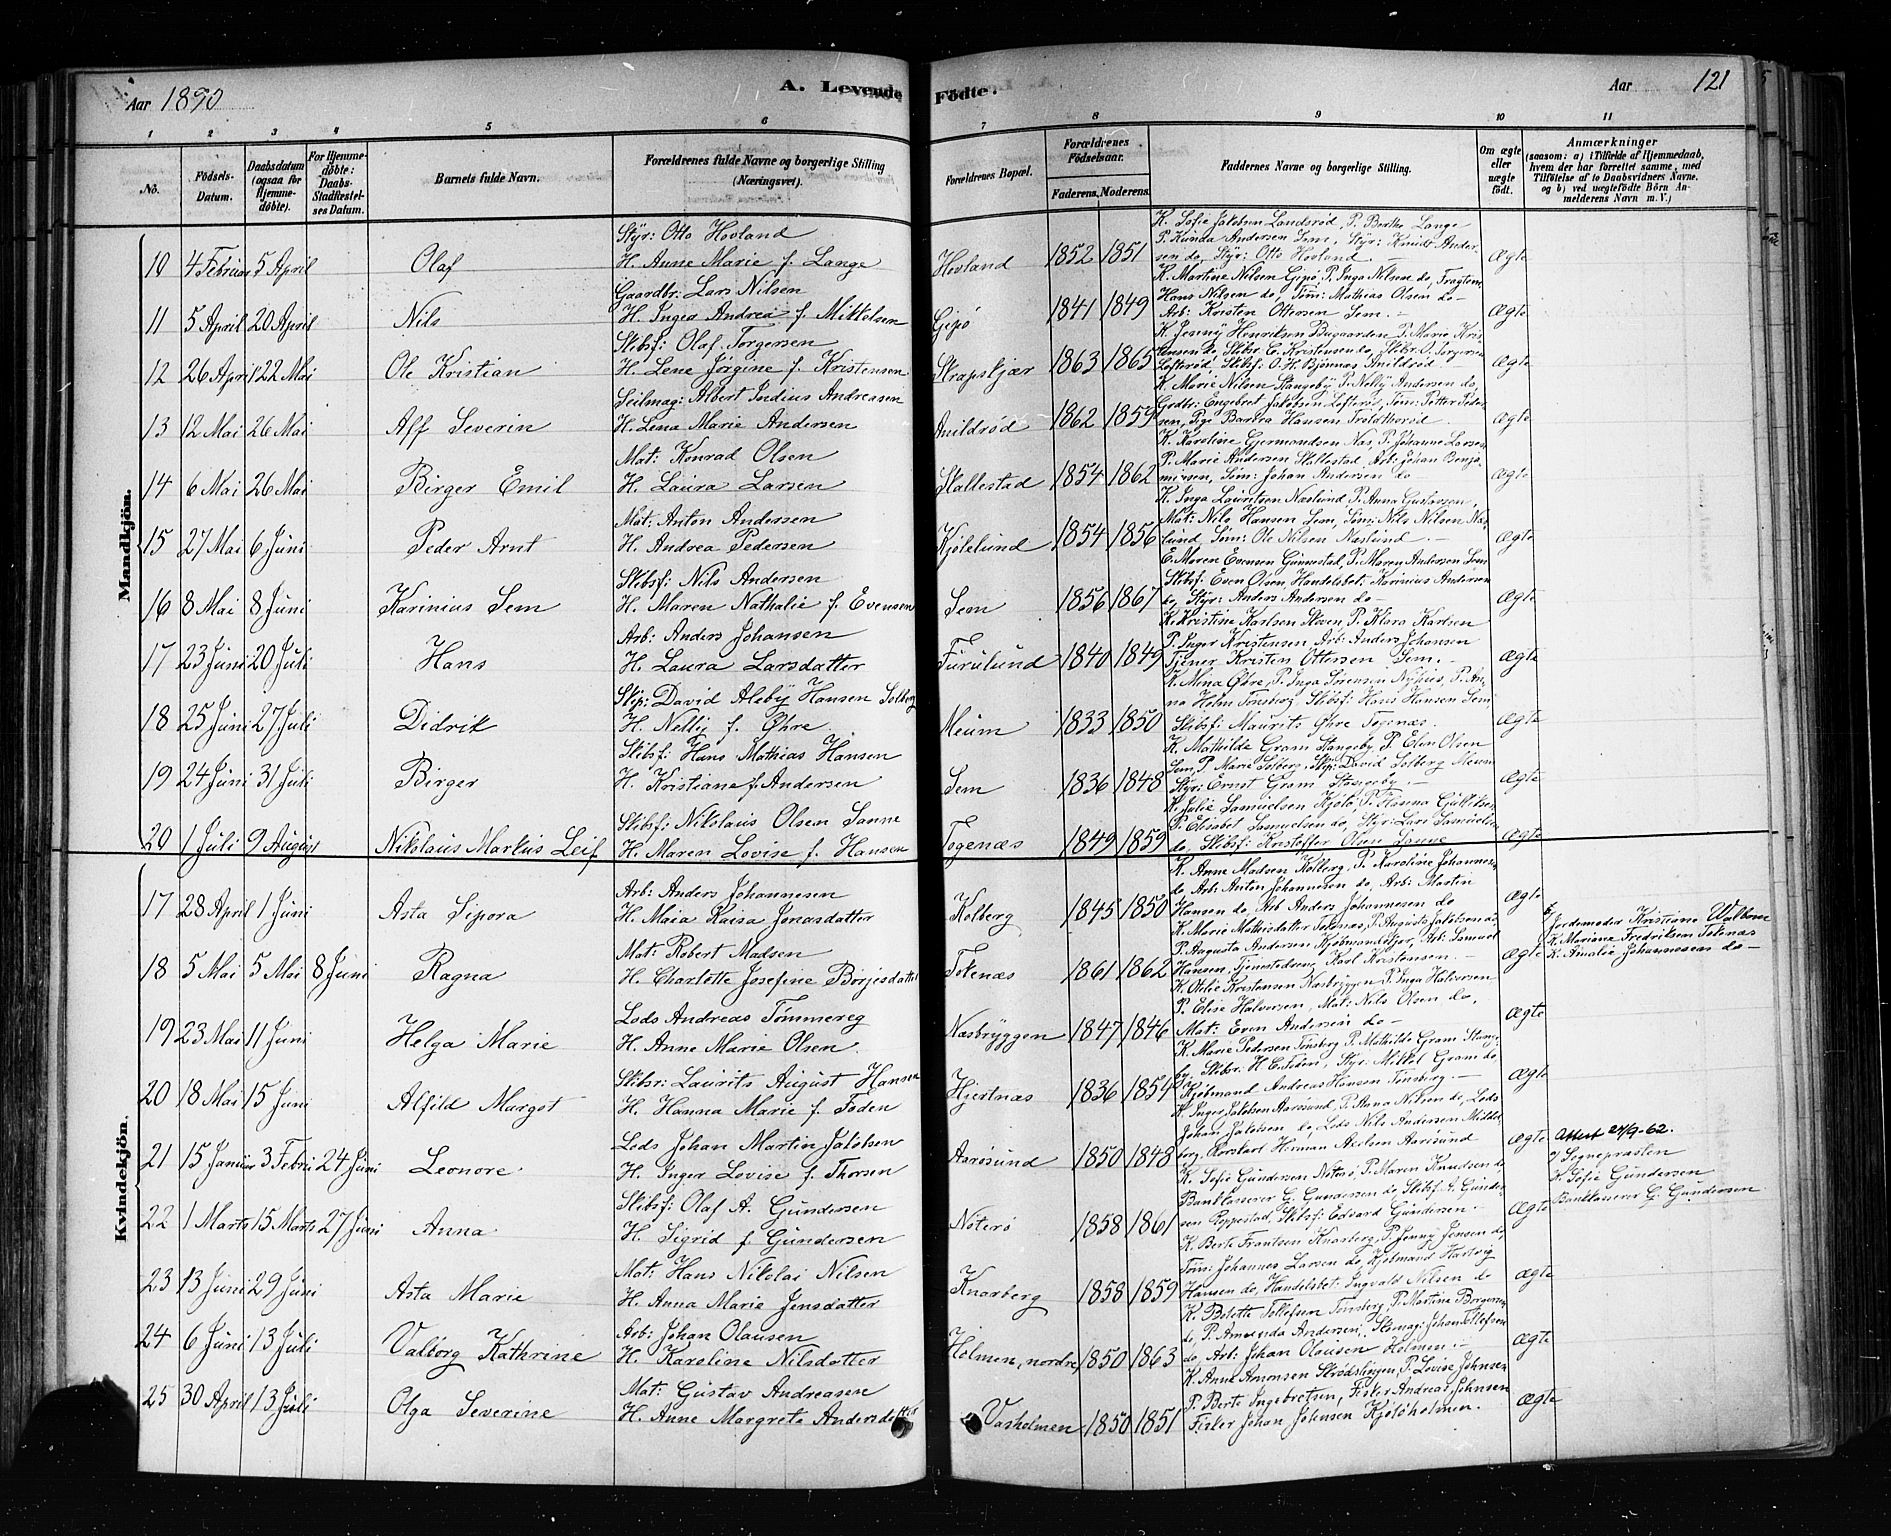 Aar 1890
A. Levende Fødte.
Aar 121
1 2 3 4 5 6 7 8 9 10 11
No.
Fødsels-Datum.
Daabsdatum (ogsaa for Hjemme-døbte).
For Hjemme-døbte: Daabs-Stadfæstel-ses Datum.
Barnets fulde Navn.
Forældrenes fulde Navne og borgerlige Stilling (Næringsvei).
Forældrenes Bopæl.
Forældrenes Fødselsaar.
Faderens. Moderens.
Faddernes Navne og borgerlige Stilling.
Om ægte eller uægte født.
Anmærkninger
(saasom: a) i Tilfælde af Hjemmedaab, hvem der har forrettet samme, med Tilføielse af to Daabsvidners Navne, og b) ved uægtefødte Børn An-melderens Navn m. V.)
Mandkjön.
10 4 Februar 5 April Olaf
Styr: Otto Hovland
H. Anne Marie f. Lange
Hovland 1852 1851
K. Sofie Jakobsen Landsrød, P. Berthe Lange
P. Kunda Andersen Sem, Styr: Knudt Ander-
sen do, Styr: Otto Hovland —
Ægte
11 5 April 20 April Nils
Gaardbr: Lars Nilsen
H. Inger Andrea f. Mikkelsen
Gipø 1841 1849
K. Martine Nilsen Gipø, P. Inga Nilsen do, Fragtem
Hans Nilsen do, Tøm: Mathias Olsen do —
Arb: Kristen Ottersen Sem. —
Ægte
12 26 April 22 Mai Ole Kristian
Skibsf: Olaf Torgersen
H. Lene Jørgine f. Kristensen
Skrapskjær 1863 1865
K. Jenny Henriksen Bugaarden, P. Marie Kris-
tensen do, Skibsr. C. Kristensen do, Skibsr. O. Torgersen
Lofterød, Skibsf: O. H. Bjønnes Anildrød —
Ægte
13 12 Mai 26 Mai Alf Severin
Seilmag: Albert Indius Andreasen
H. Lena Marie Andersen
Anildrød 1862 1859
K. Marie Nilsen Stangeby P. Nelly Andersen do,
Gadbr: Engebret Jakobsen Lofterød, Tøm: Petter Peder-
sen, Pige Barbra Hansen
Ægte
14 6 Mai 26 Mai Birger Emil
Mat: Konrad Olsen
H. Laura Larsen
Skallestad 1854 1862
K. Karoline Gjermundsen Nes, P. Johanne Larsen
P. Marie Andersen Skallestad, Arb: Johan Benja-
minsen, Tøm: Johan Andersen do
Ægte
15 27 Mai 6 Juni Peder Arnt
Mat: Anton Andersen
H. Andrea Pedersen
Kjølelund 1854 1856
K. Inga Lauritsen Næslund, P. Anna Gustavsen,
Mat: Nils Hansen Sem, Tøm: Nils Nilsen Næs-
lund, Tøm: Ole Nilsen Næslund. —
Ægte
16 8 Mai 8 Juni Karinius Sem
Skibsf: Nils Andersen
H. Maren Nathalie f. Evensen
Sem 1856 1867
E. Maren Evensen Gunnestad, P. Maren Andersen Sem
Skibsf: Even Olsen, Handelsbet: Karinius Andersen
do, Styr: Anders Andersen do —
Ægte
17 23 Juni 20 Juli Hans
Arb: Anders Johansen
H. Laura Larsdatter
Furulund 1840 1849
K. Kristine Karlsen Skoven P. Klara Karlsen
P. Inger Kristensen, Arb: Anders Johansen
Tjener Kristen Ottersen Sem. —
Ægte
18 25 Juni 27 Juli Didrik
Skip: David Aleby Hansen Solberg
H. Nelly f. Øhre
Meum 1833 1850
K. Mina Øhre, P. Inga Sørensen Nyhus, P. An-
na Holm Tønsberg, Skibsf: Hans Hansen Sem
Skibsf: Maurits Øhre Togenæs.
Ægte
19 24 Juni 31 Juli Birger
Skibsf: Hans Mathias Hansen
H. Kristiane f. Andersen
Sem 1836 1848
K. Mathilde Gram Stangeby, P. Elen Olsen
Sem, P. Marie Solberg, Skip: David Solberg Meum
Styr: Ernst Gram Stangeby —
Ægte
20 1 Juli 9 August Nikolaus Markus Leif
Skibsf: Nikolaus Olsen Sanne
H. Maren Lovise f. Hansen
Togenæs 1849 1859
K. Julie Samuelsen Kjøle, P. Hanna Gulliksen
P. Elisabet Samuelsen do, Styr: Lars Samuelsen
do, Skibsf: Kristoffer Olsen Sanne
Ægte
Kvindekjön.
17 28 April 1 Juni Asta Sipora
Arb: Anders Johannesen
H. Maia Kaisa Jonasdatter
Kolberg 1845 1850
K. Anne Madsen Kolberg, P. Karoline Johannes-
do, Arb: Anton Johannesen do, Arb: Martin
Hansen do, Arb Anders Johannesen do
Ægte
18 5 Mai 5 Mai 8 Juni Ragna
Mat: Robert Madsen
H. Charlotte Josefine Börjesdatter
Tokenæs 1861 1862
K. Marie Mathisdatter Tokenæs, P. Augusta Jakobsen do
P. Augusta Andersen Kjøbmandskjær, Arb: Samuel
Hansen, Tjenestedreng Karl Kristensen. —
Ægte
Jordemoder Kristiane Walbom
K. Mariane Fredriksen Tokenæs
K. Amalie Johannesen do —
19 23 Mai 11 Juni Helga Marie
Lods Andreas Tømmereg
H. Anne Marie Olsen
Næsbryggen 1847 1846
K. Otilie Kristensen Næsbryggen P. Inga Halvorsen
P. Elise Halvorsen, Mat: Nils Olsen do,
Mat: Even Andersen do —
Ægte
20 18 Mai 15 Juni Alfild Margot
Skibsr: Laurits August Hansen
H. Hanna Marie f. Foden
Hjertnæs 1836 1854
K. Marie Pedersen Tønsberg P. Mathilde Gram Stange-
by, Skibsr: H. C. Foden, Styr: Mikkel Gram do
Kjøbmand Andreas Hansen Tønsberg. —
Ægte
21 15 Januar 3 Febru 24 Juni Leonore
Lods Johan Martin Jakobsen
H. Inger Lovise f. Thorsen
Aarøsund 1850 1848
K. Inger Jakobsen Aarøsund, P. Anna Nilsen do, Lods
Johan Jakobsen do, Lods Nils Andersen Middel-
berg, Herman Axelsen Aarøsund
Ægte
Attest 27/9-62.
22 1 Marts 15 Marts 27 Juni Anna
Skibsf: Olaf A. Gundersen
H. Sigrid f. Gundersen
Nøterø 1858 1861
K. Sofie Gundersen Nøterø, P. Maren Knudsen do
Bankkasserer G. Gundersen do, Skibsf: A. Gunder-
sen Roppestad, Skibsf: Edvard Gundersen. —
Ægte
Sognepræsten
K. Sofie Gundersen
Bankkasserer G. Gundersen
23 13 Juni 29 Juni Asta Marie
Mat: Hans Nikolai Nilsen
H. Anna Marie Jensdatter
Knarberg 1858 1859
K. Berte Frantsen Knarberg, P. Jenny Jensen do,
Tøm: Johannes Larsen do, Kjølmand Hartvig
Hansen do, Handelsbet: Ingvald Nilsen do
Ægte
24 6 Juni 13 Juli Valborg Kathrine
Arb: Johan Olausen
H. Karoline Nilsdatter
Holmen, nordre 1850 1863
K. Bolette Tollefsen Tønsberg, P. Martine Borgersen
do, P. Amanda Andersen, Skomag: Johan Tollefsen
do, Arb: Johan Olausen Holmen. —
Ægte
25 30 April 13 Juli Olga Severine
Mat: Gustav Andreasen
H. Anne Margrete Andersdatter
Vasholmen 1850 1851
K. Anne Amonsen Skrødslingen, P. Lovise Johnsen
P. Berte Ingebretsen, Fisker Andreas Johnsen
Fisker Johan Johnsen Kjøløholmen.
Ægte